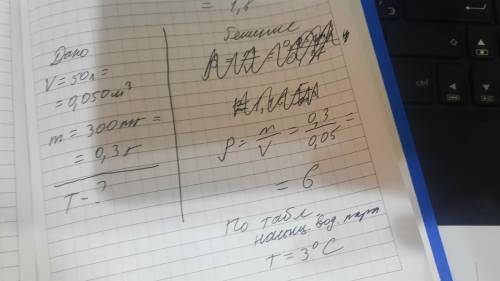 = 1,8
Дано
V = 50л =
= 0,050м³
m = 300мг =
= 0,3г
T - ?
Решение
ρ = m/V = 0,3/0,05 =
= 6
По табл
насыщ. вод. пара
T = 3°C